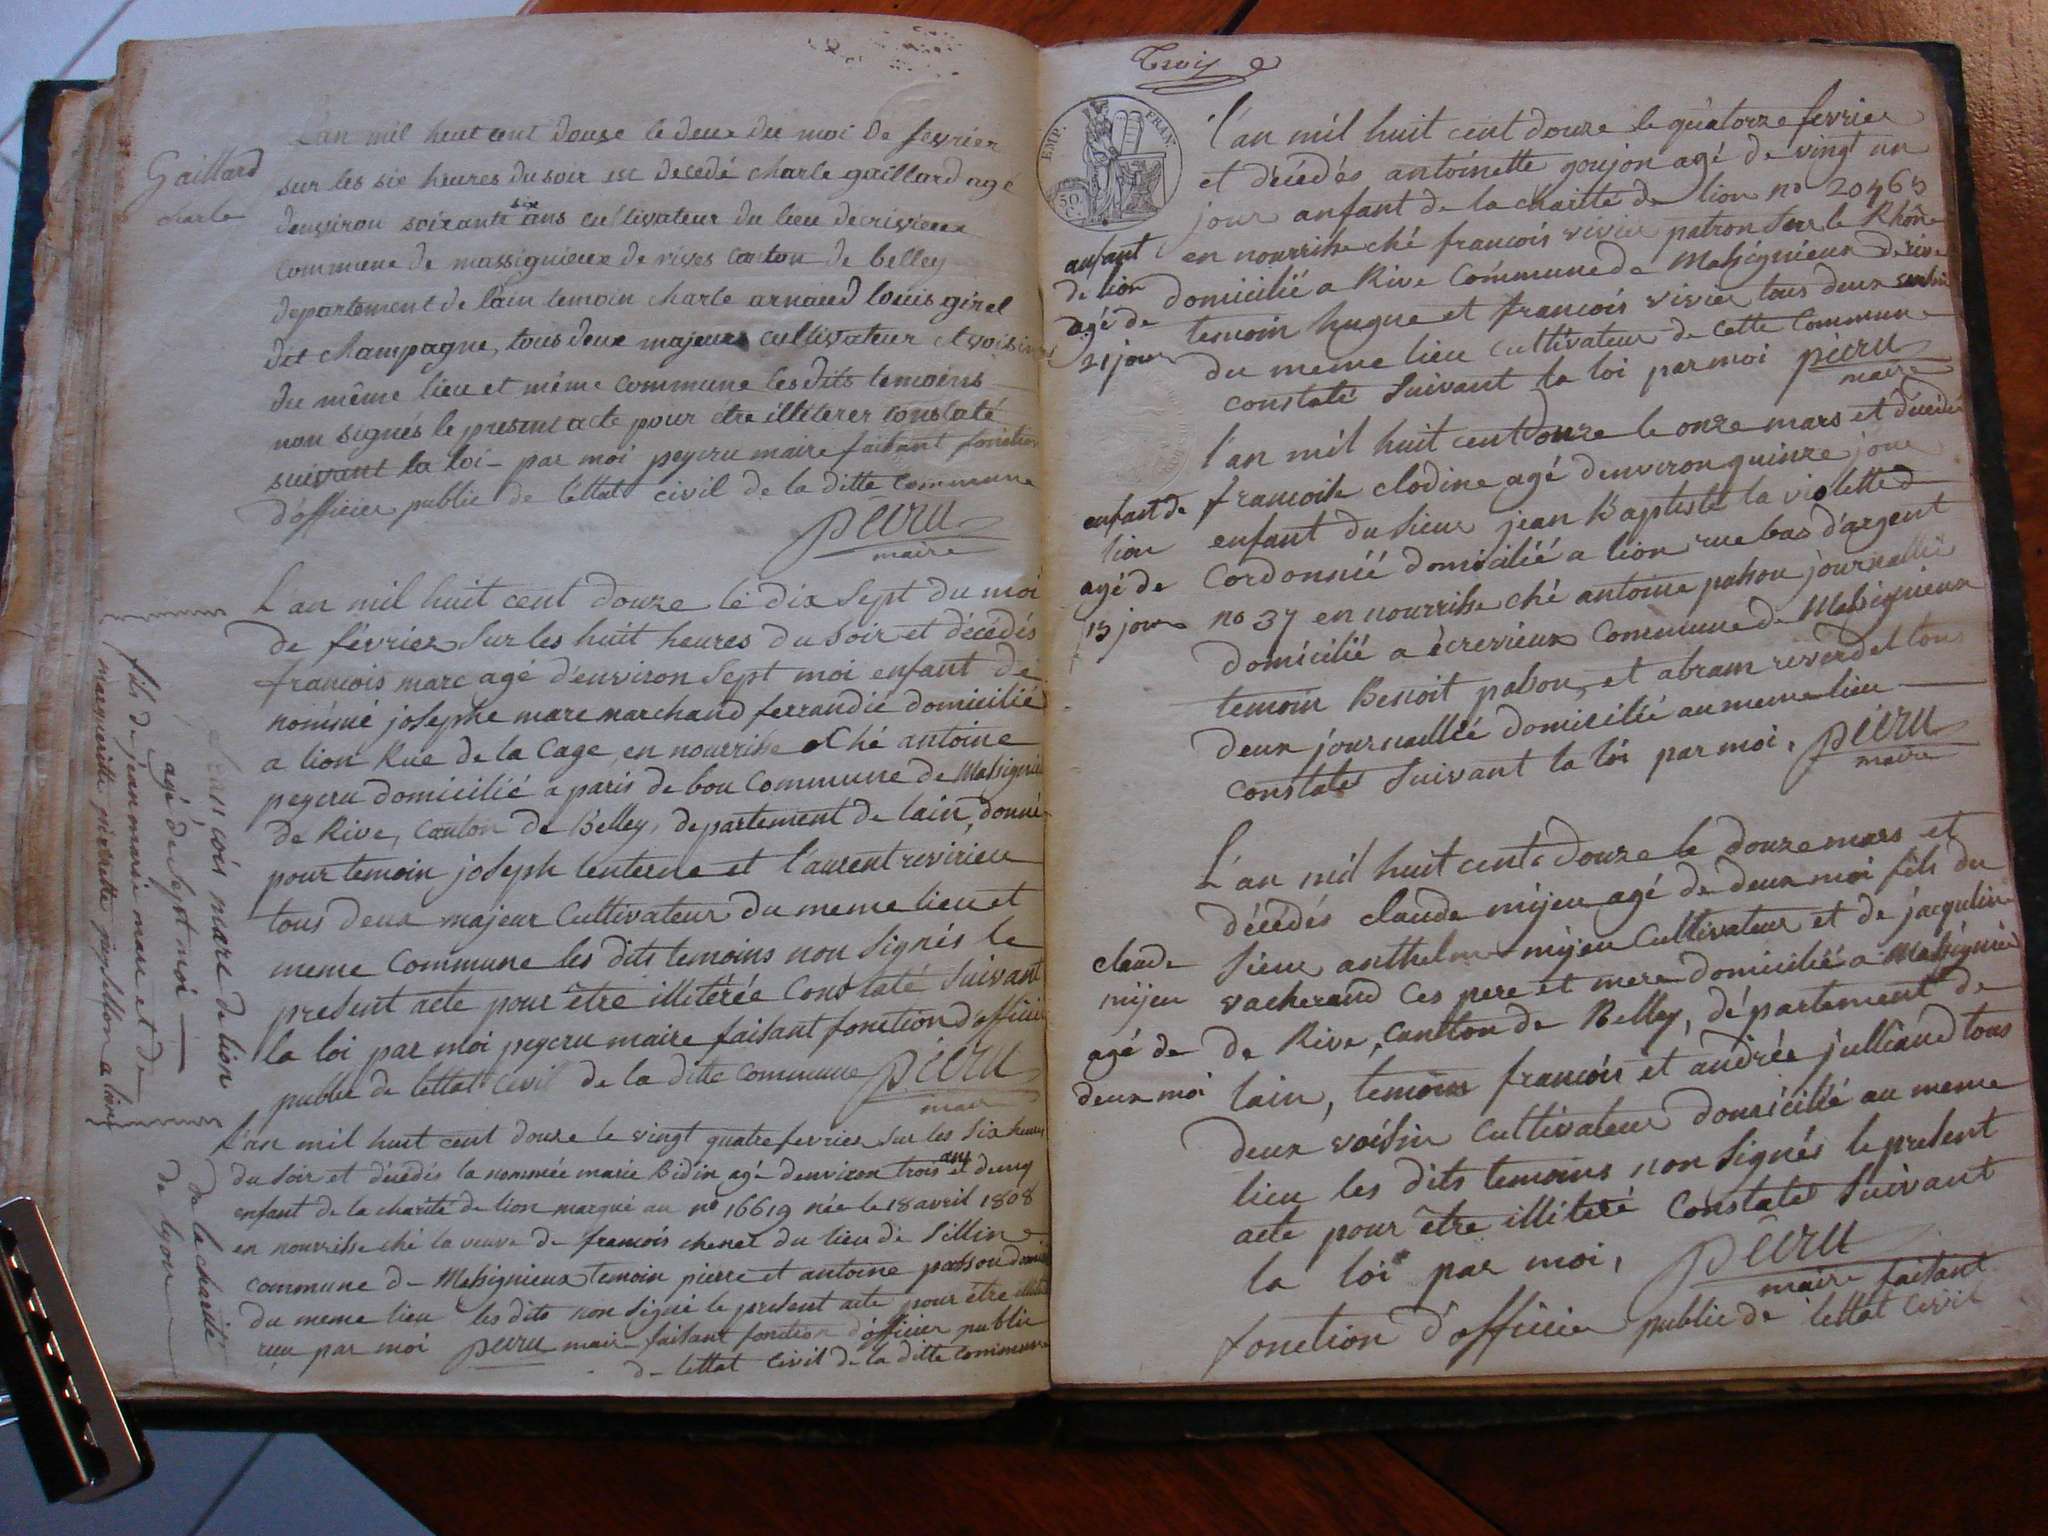 Gaillard
charle
L'an mil huit cent douse le deux du moi de fevrier
sur les six heures du soir est decedé charle gaillard agé
d'environ soixante six ans cultivateur du lieu decrivieux
commune de massignieux de rives canton de belley
departement de lain temoin charle arnaud louis girel
dit champagne, tous deux majeurs cultivateur et voisin
du même lieu et même commune les dits temoins
non signés le present acte pour etre illiterer constaté
suivant la loi - par moi peycru maire faisant fonction
d'officier public de lettat civil de la ditte commune
pécru
maire
L'an mil huit cent douze le dix sept du moi
de février sur les huit heures du soir et décédés
francois marc agé d'environ sept moi enfant de
nommé josephe marc marchand ferrandié domicilié
a lion Rue de la Cage, en nourrisse ché antoine
peycru domicilié a paris de bou commune de Massignieu
de Rive, canton de Belley, departement de lain, donné
pour temoin joseph lenterne et laurent revirieu
tous deux majeur Cultivateur du meme lieu et
meme commune les dits temoins non signés le
present acte pour être illitérée Constaté suivant
la loi par moi peycru maire faisant fonction d'officier
public de lettat civil de la ditte commune pécru
maire
francois marc de lion
agé de sept moi
fils de jean marie marc et de
marguerite pierrette papillon a lion
L'an mil huit cent douze le vingt quatre fevrier sur les six heures
du soir et décédés la nommée marie Bidin agé d'environ trois ans et demy
enfant de la charité de lion marqué au no 16619 née le 18 avril 1808
en nourrisse ché la veuve de francois chenet du lieu de Sillin
commune de Massignieux temoin pierre et antoine passou
du meme lieu les dits non signé le present acte pour être
reçu par moi pécru maire faisant fonction d'officier public
de lettat civil de la ditte commune
de la charité
de lyon
Trois
EMP. FRAN.
50
C.
l'an mil huit cent douze le quatorze fevrier
et décédés antoinette goujon agé de vingt un
jour anfant de la charitté de lion no 20465
en nourrisse ché francois vivier patron sur le Rhône
domicilié a Rive Commune de Massignieux de rive
temoin hugue et francois vivier tous deux
du meme lieu cultivateur de cette commune
constaté suivant la loi par moi pécru
maire
anfant
de lion
agé de
21 jour
l'an mil huit cent douze le onze mars et décédé
francoise clodine agé d'environ quinze jour
enfant du sieur jean Baptiste la violette
Cordonnié domicilié a lion rue bas d'argent
no 37 en nourrisse ché antoine passou journallié
domicilié a écrevieux Commune de Massignieux
temoin Benoit passou et abram reverdel tous
deux journallié domicilié au meme lieu
constaté suivant la loi par moi, pécru
maire
enfant de
lion
agé de
15 jour
L'an mil huit cent douze le douze mars et
décédés claude mijeu agé de deux moi fils du
sieur anthelme mijeu Cultivateur et de jacquline
vacherand ces pere et mere domicilié a Massignieu
de Rive, Cantton de Belley, département de
lain, temoins francois et andrée julliand tous
deux voisin cultivateur domicillé au meme
lieu les dits temoins non signés le present
acte pour être illiteré Constaté suivant
la loi par moi, pécru
maire faisant
fonction d'officier public de lettat civil
claude
mijeu
agé de
deux moi